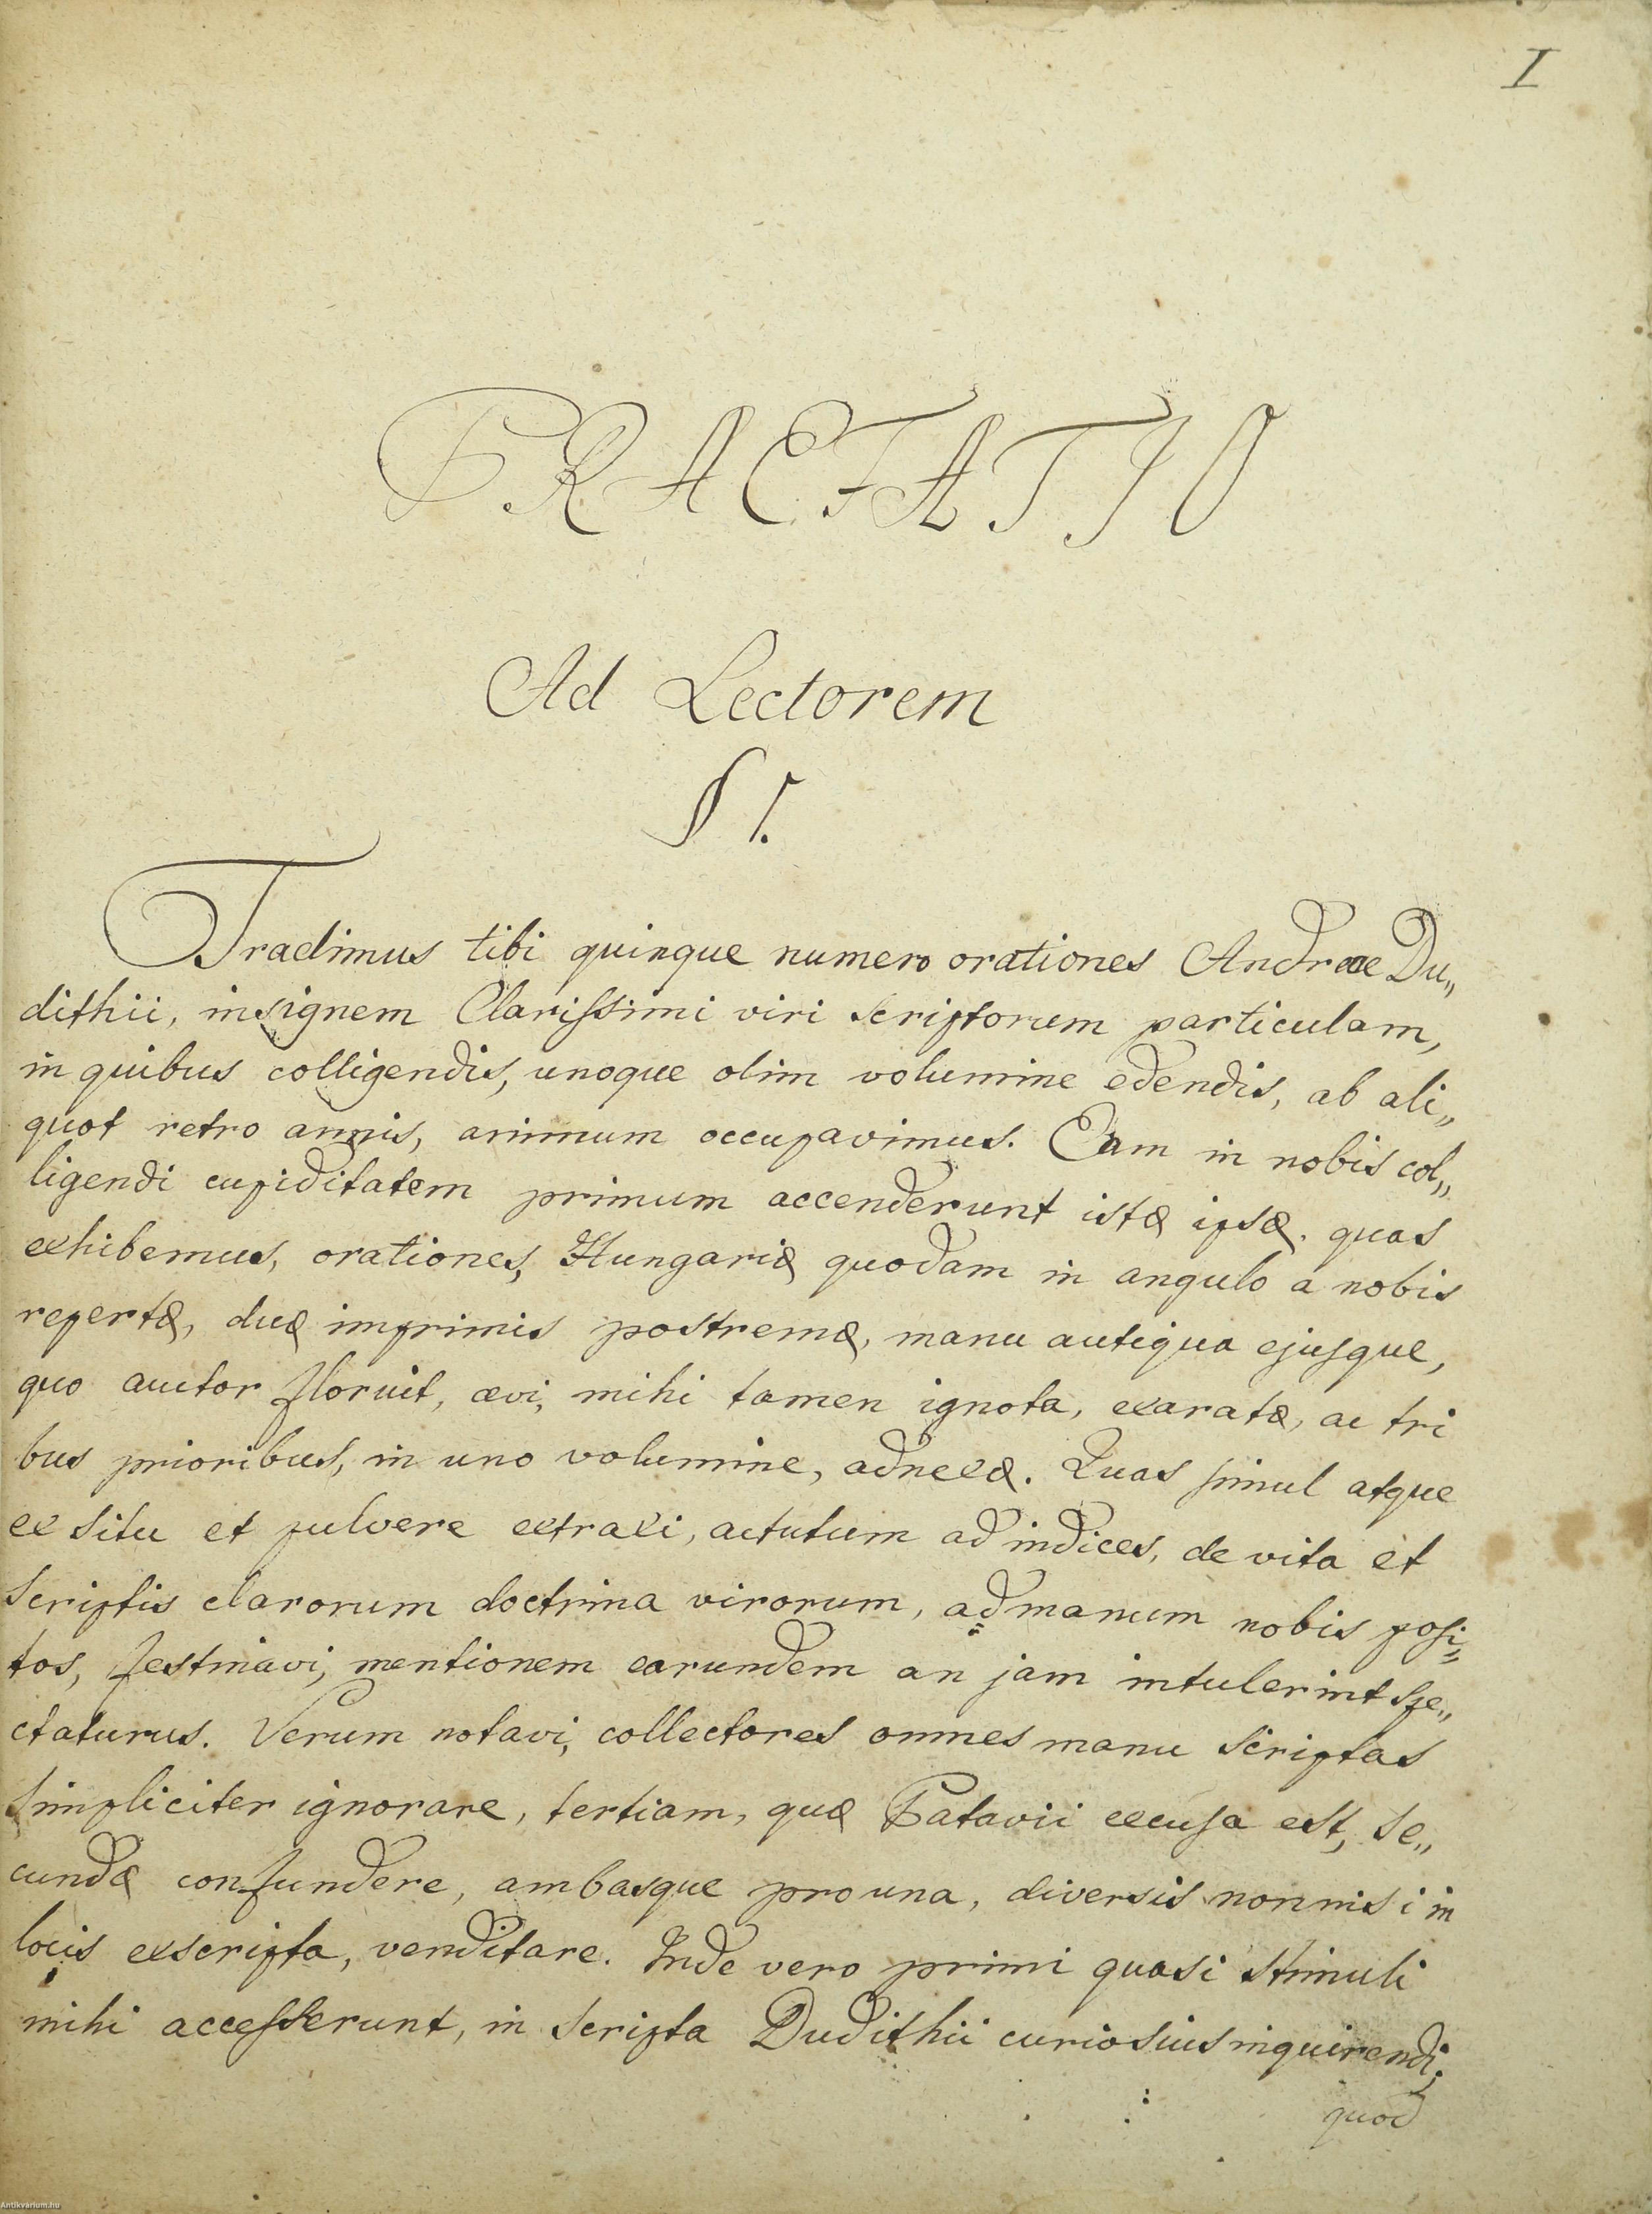 I
PRAEFATIO
Ad Lectorem
§ 1.
Tradimus tibi quinque numero orationes Andreae Du„
dithii, insignem Clarissimi viri scriptorum particulam,
in quibus colligendis, unoque olim volumine edendis, ab ali„
quot retro annis, animum occupavimus. Eam in nobis col„
ligendi cupiditatem primum accenderunt istæ ipsæ, quas
exhibemus, orationes, Hungariæ quodam in angulo a nobis
repertæ, duæ imprimis postremæ, manu antiqua ejusque,
quo auctor floruit, ævi, mihi tamen ignota, exaratæ, ac tri
bus prioribus, in uno volumine, adnexæ. Quas simul atque
ex situ et pulvere extraxi, actutum ad indices, de vita et
scriptis clarorum doctrina virorum, ad manum nobis posi„
tos, festinavi, mentionem earundem an jam intulerint spe„
ctaturus. Verum notavi, collectores omnes manu scriptas
simpliciter ignorare, tertiam, quæ Patavii excusa est, se„
cundæ confundere, ambasque pro una, diversis nonnisi in
locis exscripta, venditare. Inde vero primi quasi stimuli
mihi accesserunt, in scripta Dudithii curiosius inquirendi;
quod
Antikvarium.hu